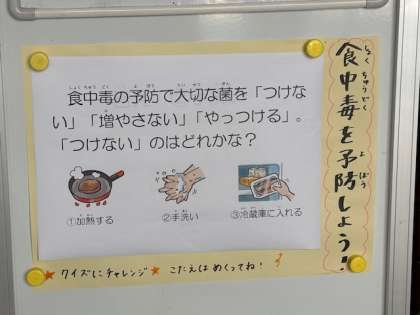 食中毒を予防しよう!
食中毒の予防で大切な菌を「つけな
い」「増やさない」「やっつける」。
「つけない」のはどれかな?
①加熱する
②手洗い
③冷蔵庫に入れる
クイズにチャレンジ★ こたえはめくってね!